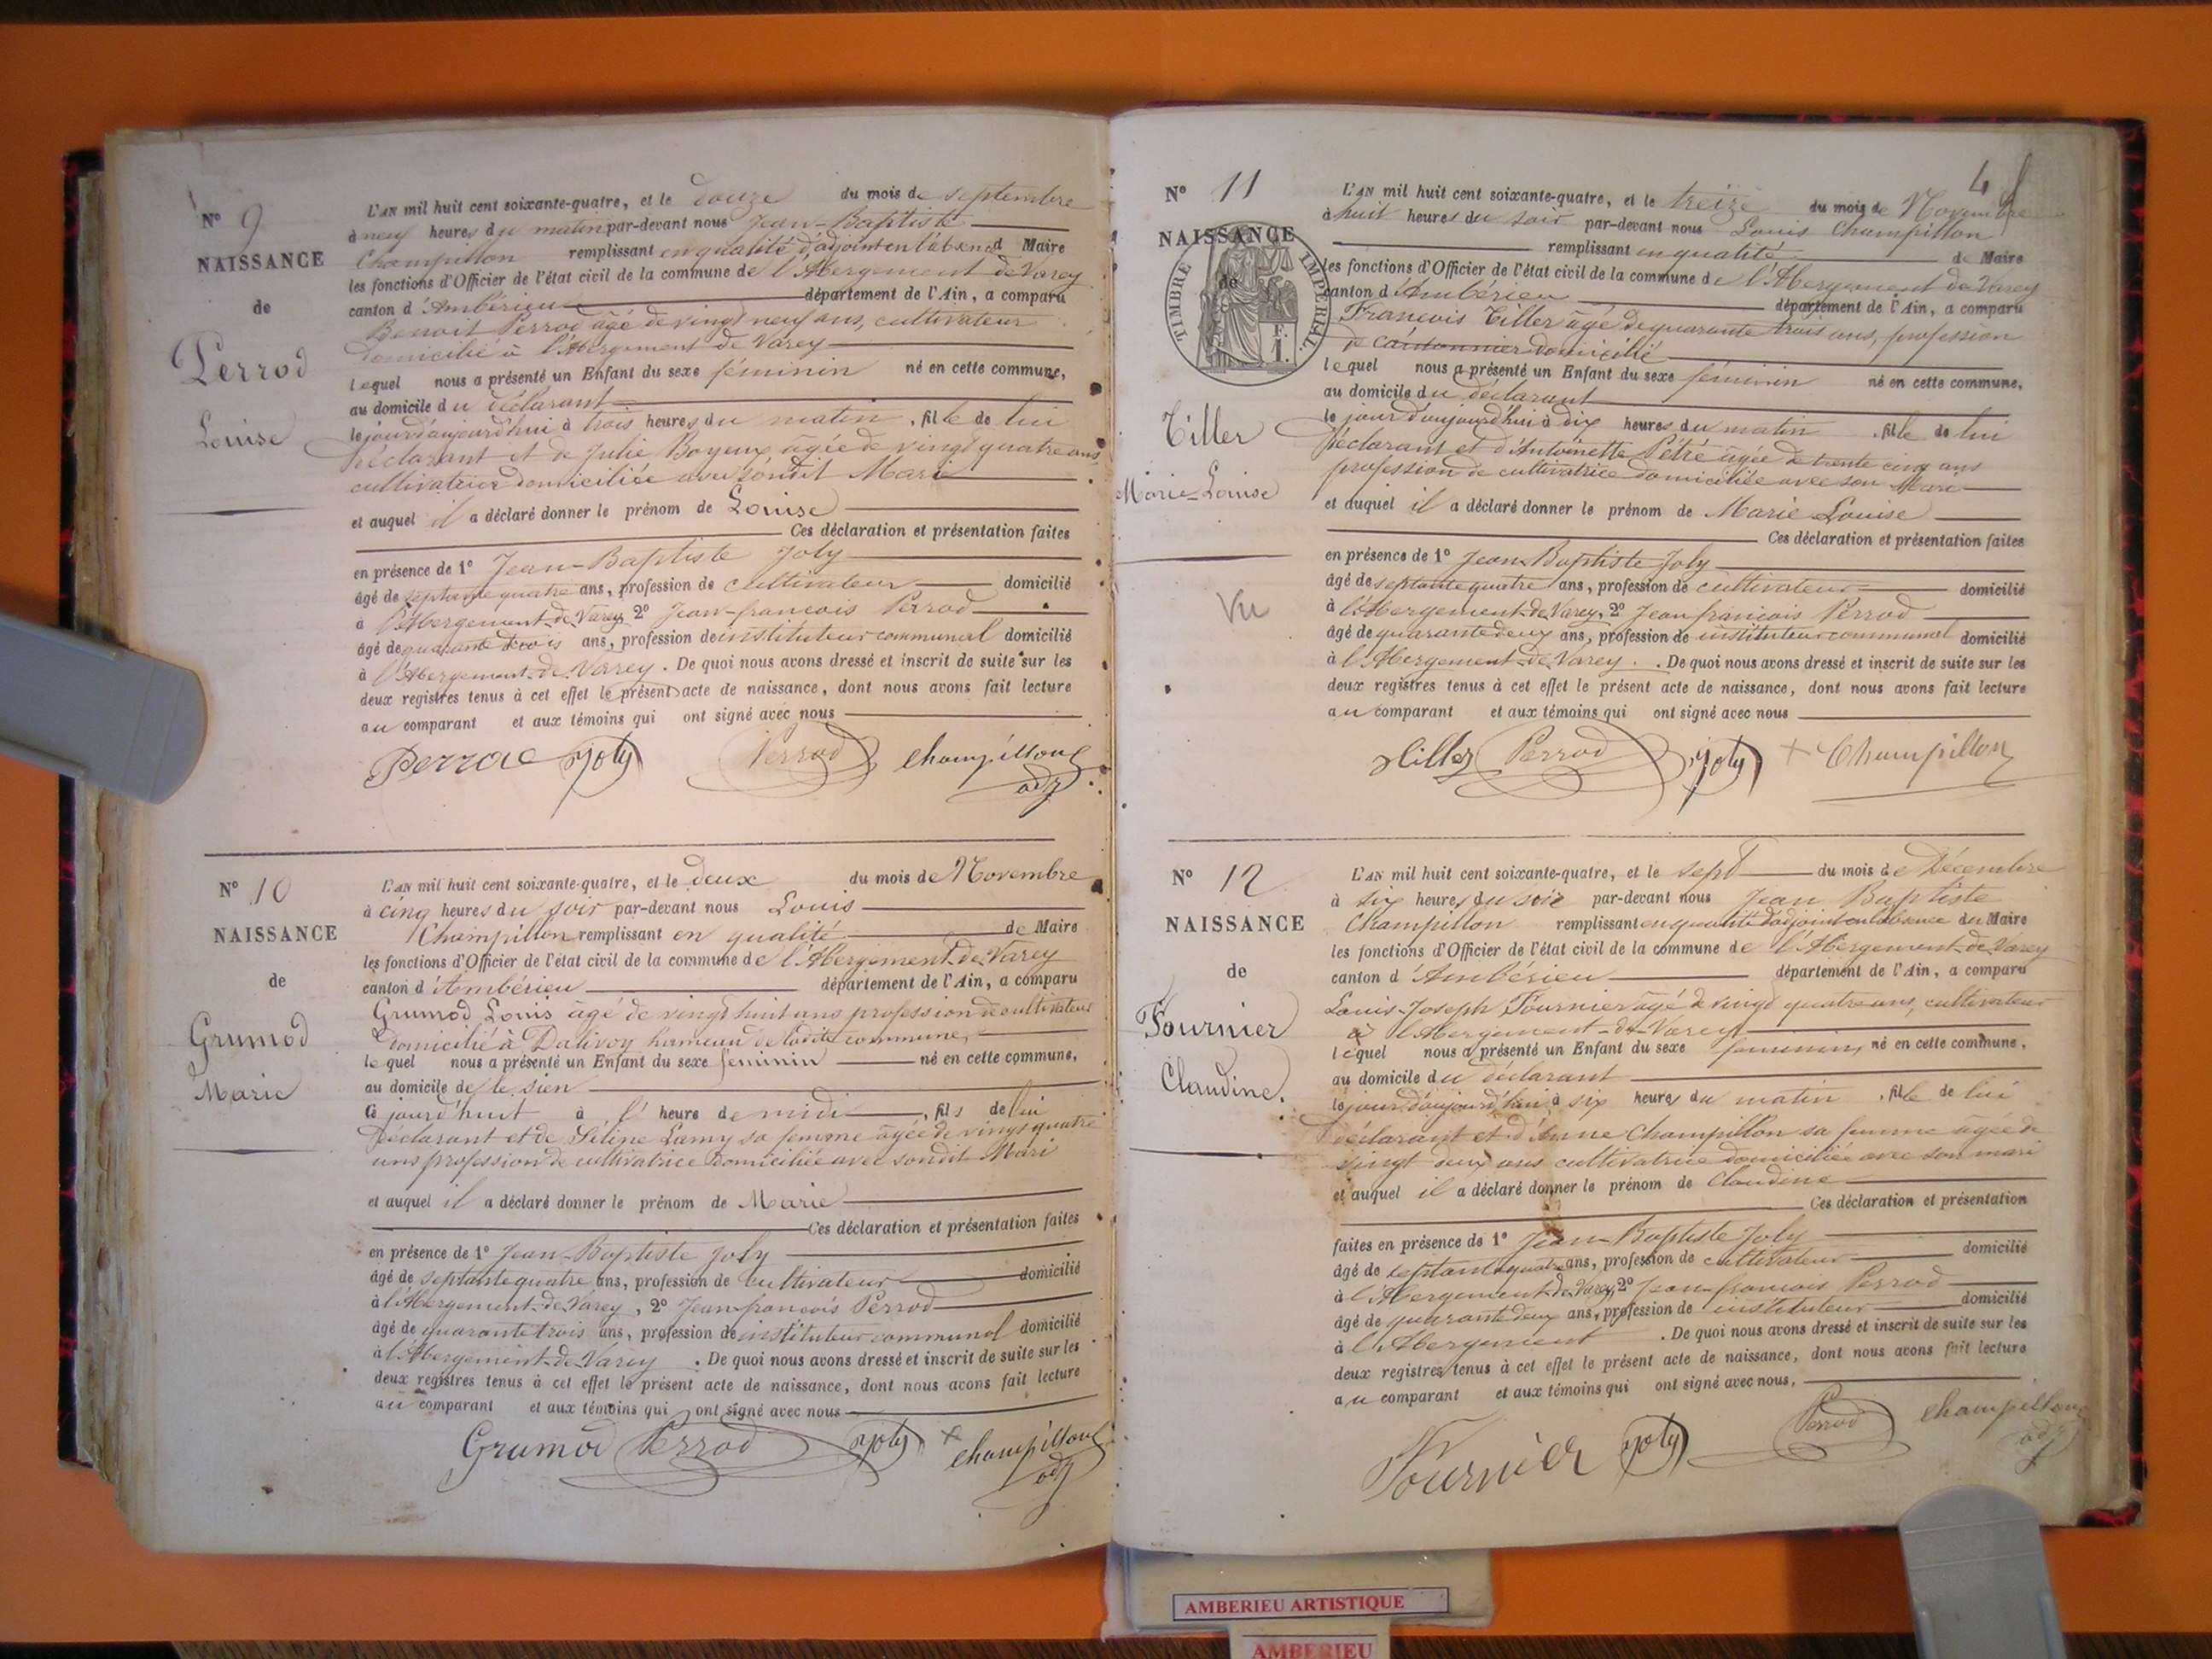 N° 9
NAISSANCE
de
Perrod
Louise
L'AN mil huit cent soixante-quatre, et le douze du mois de septembre
à neuf heures du matin par-devant nous Jean-Baptiste
Champillon remplissant en qualité d'adjoint en l'absence d Maire
les fonctions d'Officier de l'état civil de la commune de l'Abergement de Varey
canton d'Ambérieu département de l'Ain, a comparu
Benoit Perrod âgé de vingt neuf ans, cultivateur
domicilié à l'Abergement de Varey
lequel nous a présenté un Enfant du sexe féminin né en cette commune,
au domicile du déclarant
le jour d'aujourd'hui à trois heures du matin, fille de lui
déclarant et de Julie Boyeux âgée de vingt quatre ans
cultivatrice domiciliée avec sondit Mari
et auquel il a déclaré donner le prénom de Louise
Ces déclaration et présentation faites
en présence de 1° Jean-Baptiste Joly
âgé de septante quatre ans, profession de cultivateur domicilié
à l'Abergement-de-Varey 2° Jean-francois Perrod
âgé de quarante trois ans, profession de instituteur communal domicilié
à l'Abergement-de-Varey. De quoi nous avons dressé et inscrit de suite sur les
deux registres tenus à cet effet le présent acte de naissance, dont nous avons fait lecture
au comparant et aux témoins qui ont signé avec nous
Perrod Joly Perrod Champillon
adj
N° 10
NAISSANCE
de
Grumod
Marie
L'AN mil huit cent soixante-quatre, et le deux du mois de Novembre
à cinq heures du soir par-devant nous Louis
Champillon remplissant en qualité de Maire
les fonctions d'Officier de l'état civil de la commune de l'Abergement-de-Varey
canton d'Ambérieu département de l'Ain, a comparu
Grumod Louis âgé de vingt huit ans profession de cultivateur
domicilié à Dalivoy hameau de ladite commune,
lequel nous a présenté un Enfant du sexe féminin né en cette commune,
au domicile de le sien
Ce jourd'huit à l' heure de midi, fils de lui
déclarant et de Séline Lamy sa femme âgée de vingt quatre
ans profession de cultivatrice domiciliée avec sondit Mari
et auquel il a déclaré donner le prénom de Marie
Ces déclaration et présentation faites
en présence de 1° Jean-Baptiste Joly
âgé de septante quatre ans, profession de cultivateur domicilié
à l'Abergement-de-Varey, 2° Jean-francois Perrod
âgé de quarante trois ans, profession de instituteur communal domicilié
à l'Abergement-de-Varey. De quoi nous avons dressé et inscrit de suite sur les
deux registres tenus à cet effet le présent acte de naissance, dont nous avons fait lecture
au comparant et aux témoins qui ont signé avec nous
Grumod Perrod Joly + Champillon
adj
4
N° 11
NAISSANCE
de
TIMBRE IMPERIAL
F. 1.
Tiller
Marie-Louise
Vu
L'AN mil huit cent soixante-quatre, et le treize du mois de Novembre
à huit heures du soir par-devant nous Louis Champillon
remplissant en qualité de Maire
les fonctions d'Officier de l'état civil de la commune de l'Abergement de Varey
canton d'Ambérieu département de l'Ain, a comparu
Francois Tiller âgé de quarante trois ans, profession
de cantonnier domicilié
lequel nous a présenté un Enfant du sexe féminin né en cette commune,
au domicile du déclarant
le jour d'aujourd'hui à dix heures du matin, fille de lui
déclarant et d'Antoinette Pétré âgée de trente cinq ans
profession de cultivatrice domiciliée avec son Mari
et auquel il a déclaré donner le prénom de Marie Louise
Ces déclaration et présentation faites
en présence de 1° Jean-Baptiste Joly
âgé de septante quatre ans, profession de cultivateur domicilié
à l'Abergement-de-Varey, 2° Jean francois Perrod
âgé de quarante deux ans, profession de instituteur communal domicilié
à l'Abergement-de-Varey. De quoi nous avons dressé et inscrit de suite sur les
deux registres tenus à cet effet le présent acte de naissance, dont nous avons fait lecture
au comparant et aux témoins qui ont signé avec nous
Tiller Perrod Joly + Champillon
N° 12
NAISSANCE
de
Fournier
Claudine.
L'AN mil huit cent soixante-quatre, et le sept du mois de Décembre
à six heures du soir par-devant nous Jean Baptiste
Champillon remplissant en qualité d'adjoint en l'absence du Maire
les fonctions d'Officier de l'état civil de la commune de l'Abergement-de-Varey
canton d'Ambérieu département de l'Ain, a comparu
Louis-Joseph Fournier âgé de vingt quatre ans, cultivateur
à l'Abergement-de-Varey
lequel nous a présenté un Enfant du sexe féminin, né en cette commune,
au domicile du déclarant
le jour d'aujourd'hui à six heures du matin, fille de lui
déclarant et d'Anne Champillon sa femme âgée de
vingt deux ans cultivatrice domiciliée avec son mari
et auquel il a déclaré donner le prénom de Claudine
Ces déclaration et présentation
faites en présence de 1° Jean-Baptiste Joly
âgé de septante quatre ans, profession de cultivateur domicilié
à l'Abergement-de-Varey 2° Jean-francois Perrod
âgé de quarante deux ans, profession de instituteur domicilié
à l'Abergement. De quoi nous avons dressé et inscrit de suite sur les
deux registres tenus à cet effet le présent acte de naissance, dont nous avons fait lecture
au comparant et aux témoins qui ont signé avec nous.
Fournier Joly Perrod Champillon
adj
AMBERIEU ARTISTIQUE
AMBERIEU